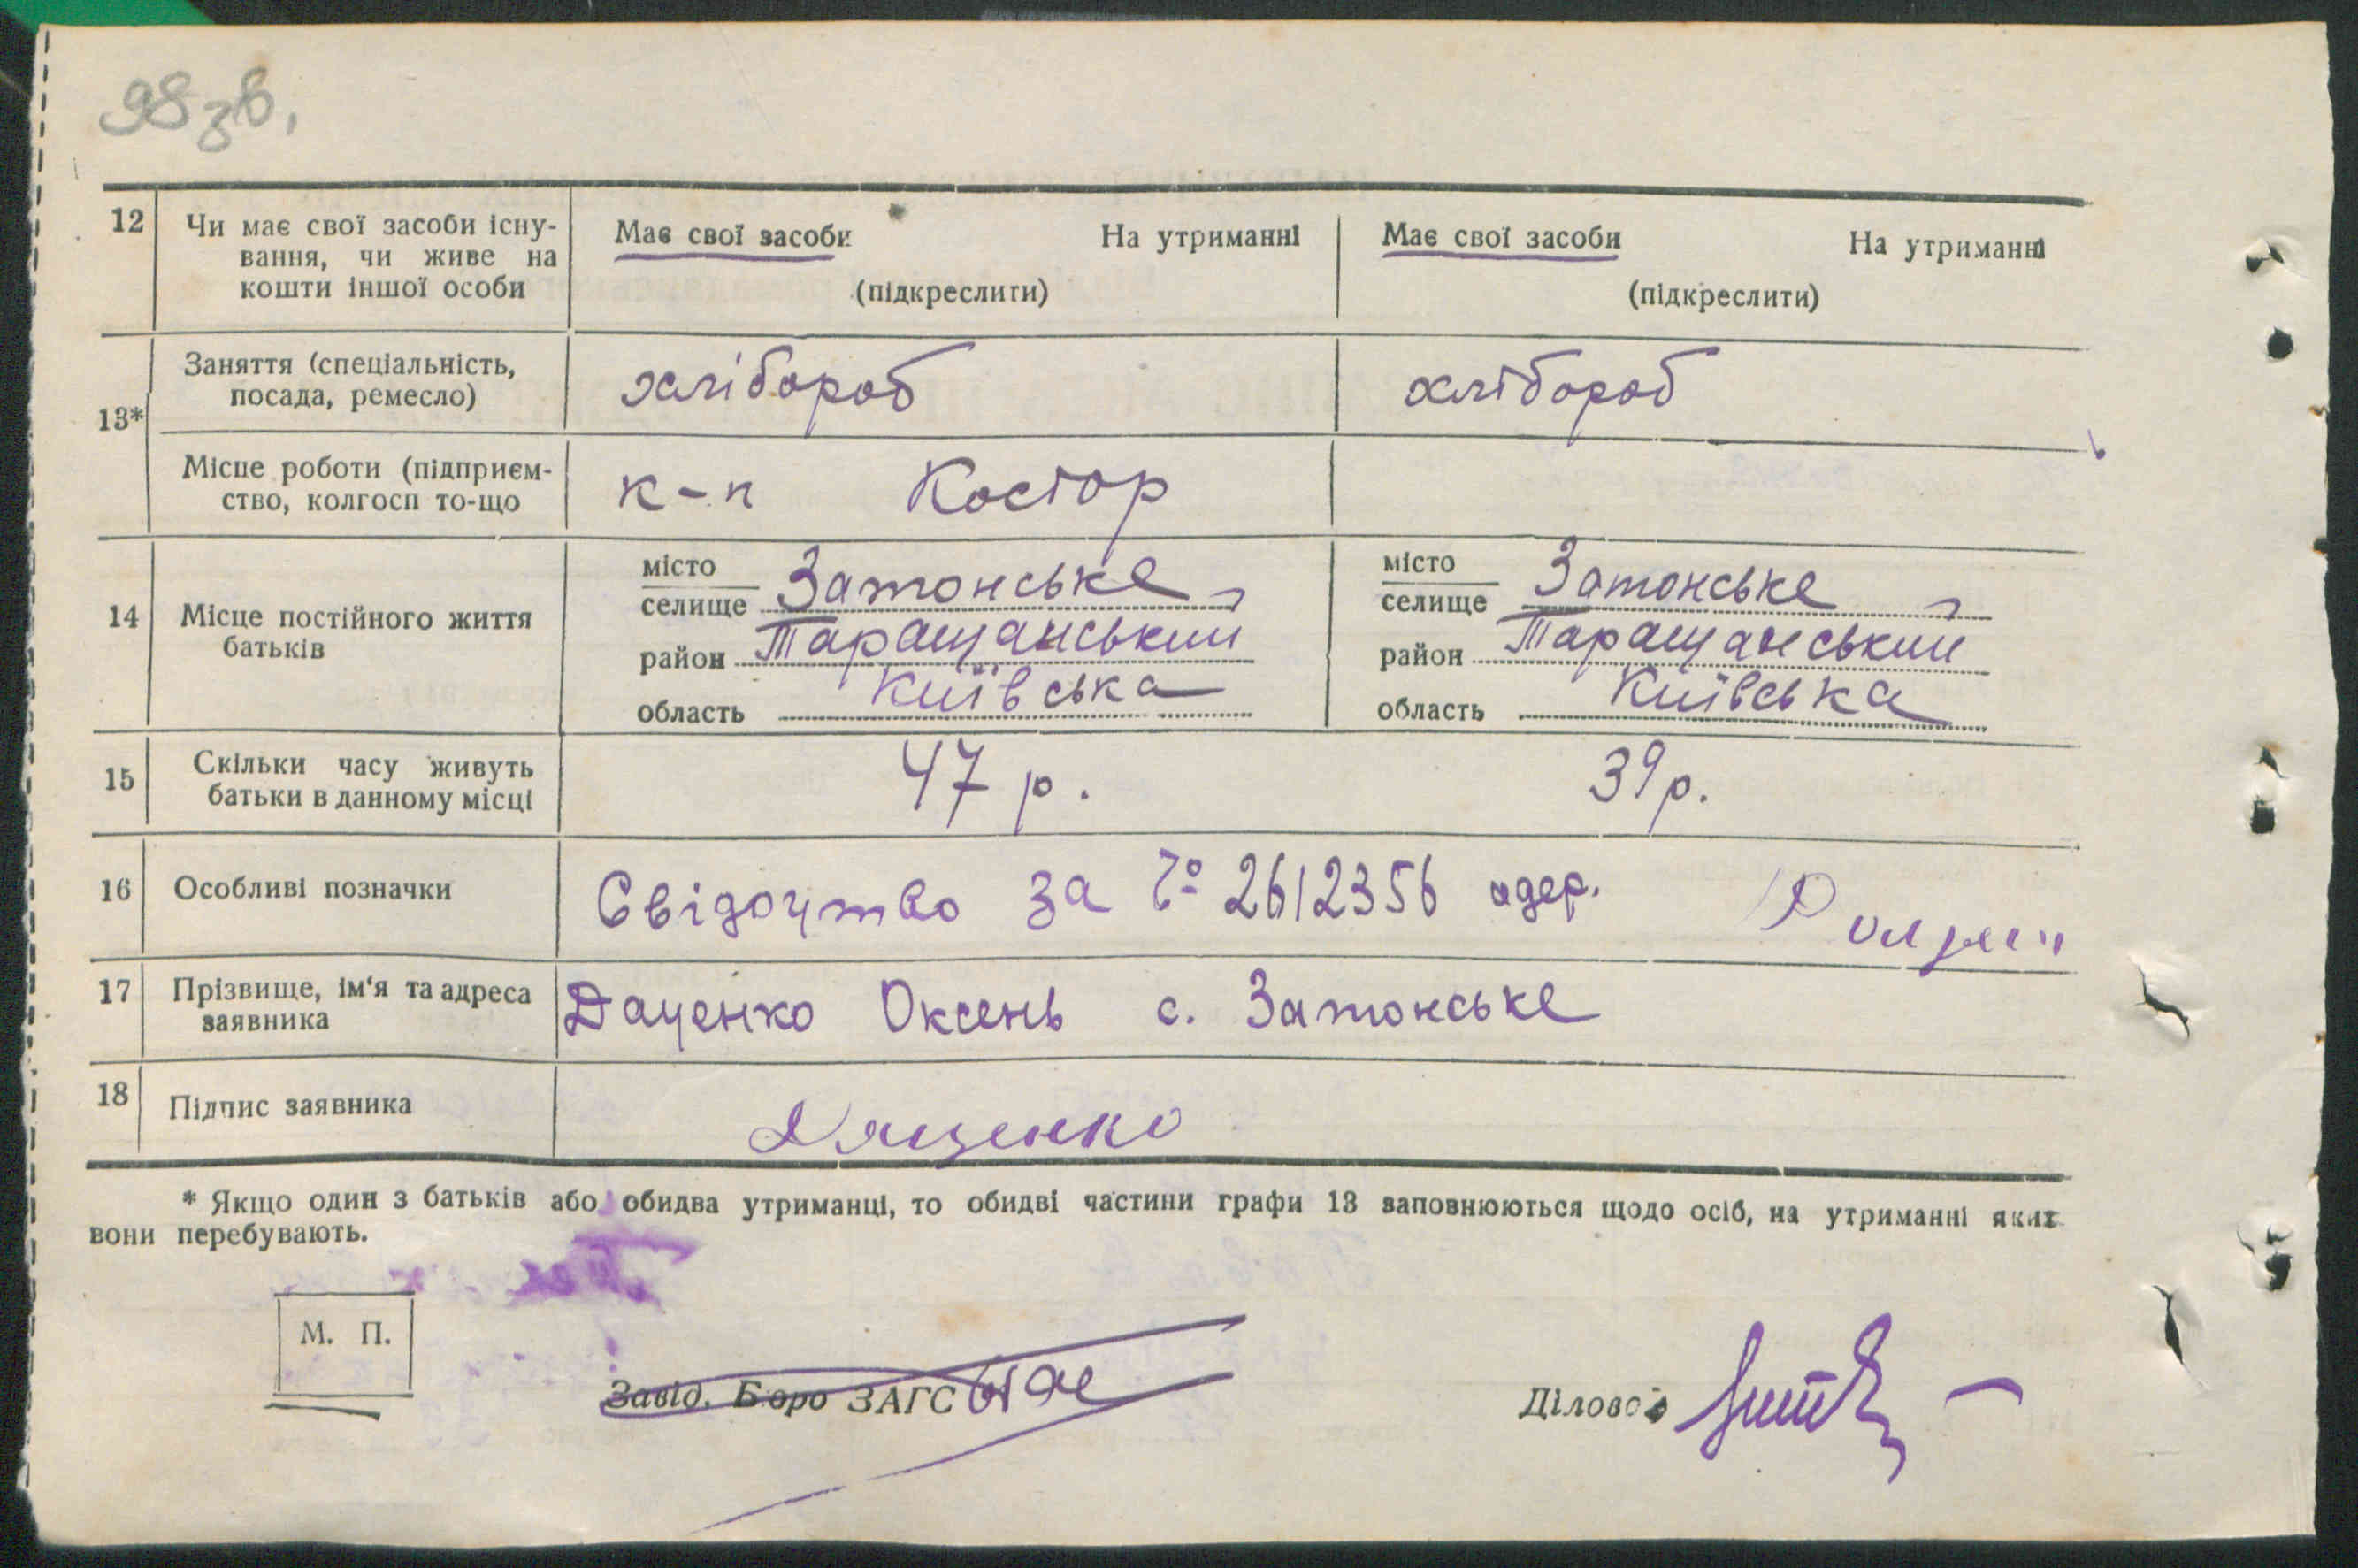 98 зв.
12 Чи має свої засоби існу- Має свої засоби На утриманні Має свої засоби На утриманні
вання, чи живе на
кошти іншої особи (підкреслити) (підкреслити)
13* Заняття (спеціальність, хлібороб хлібороб
посада, ремесло)
Місце роботи (підприєм- к-п Костор
ство, колгосп то-що
14 Місце постійного життя батьків
місто
селище Затонське
район Таращанський
область Київська
місто
селище Затонське
район Таращанський
область Київська
15 Скільки часу живуть 47 р. 39 р.
батьки в данному місці
16 Особливі позначки Свідоцтво за № 2612356 одер.
17 Прізвище, ім'я та адреса Даценко Оксень с. Затонське
заявника
18 Підпис заявника Дяценко
* Якщо один з батьків або обидва утриманці, то обидві частини графи 13 заповнюються щодо осіб, на утриманні яких
вони перебувають.
М. П.
Завід. Бюро ЗАГС
Діловод